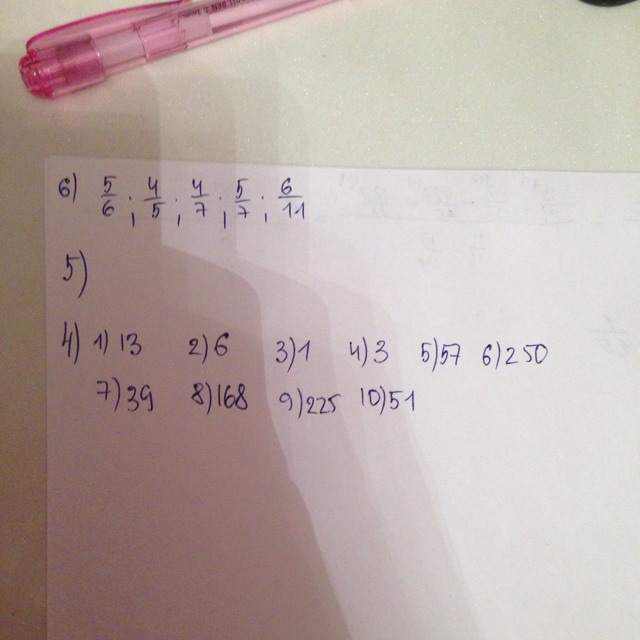 6) 5/6 ; 4/5 ; 4/7 ; 5/7 ; 6/11
5)
4) 1) 13 2) 6 3) 1 4) 3 5) 57 6) 250
7) 39 8) 168 9) 225 10) 51